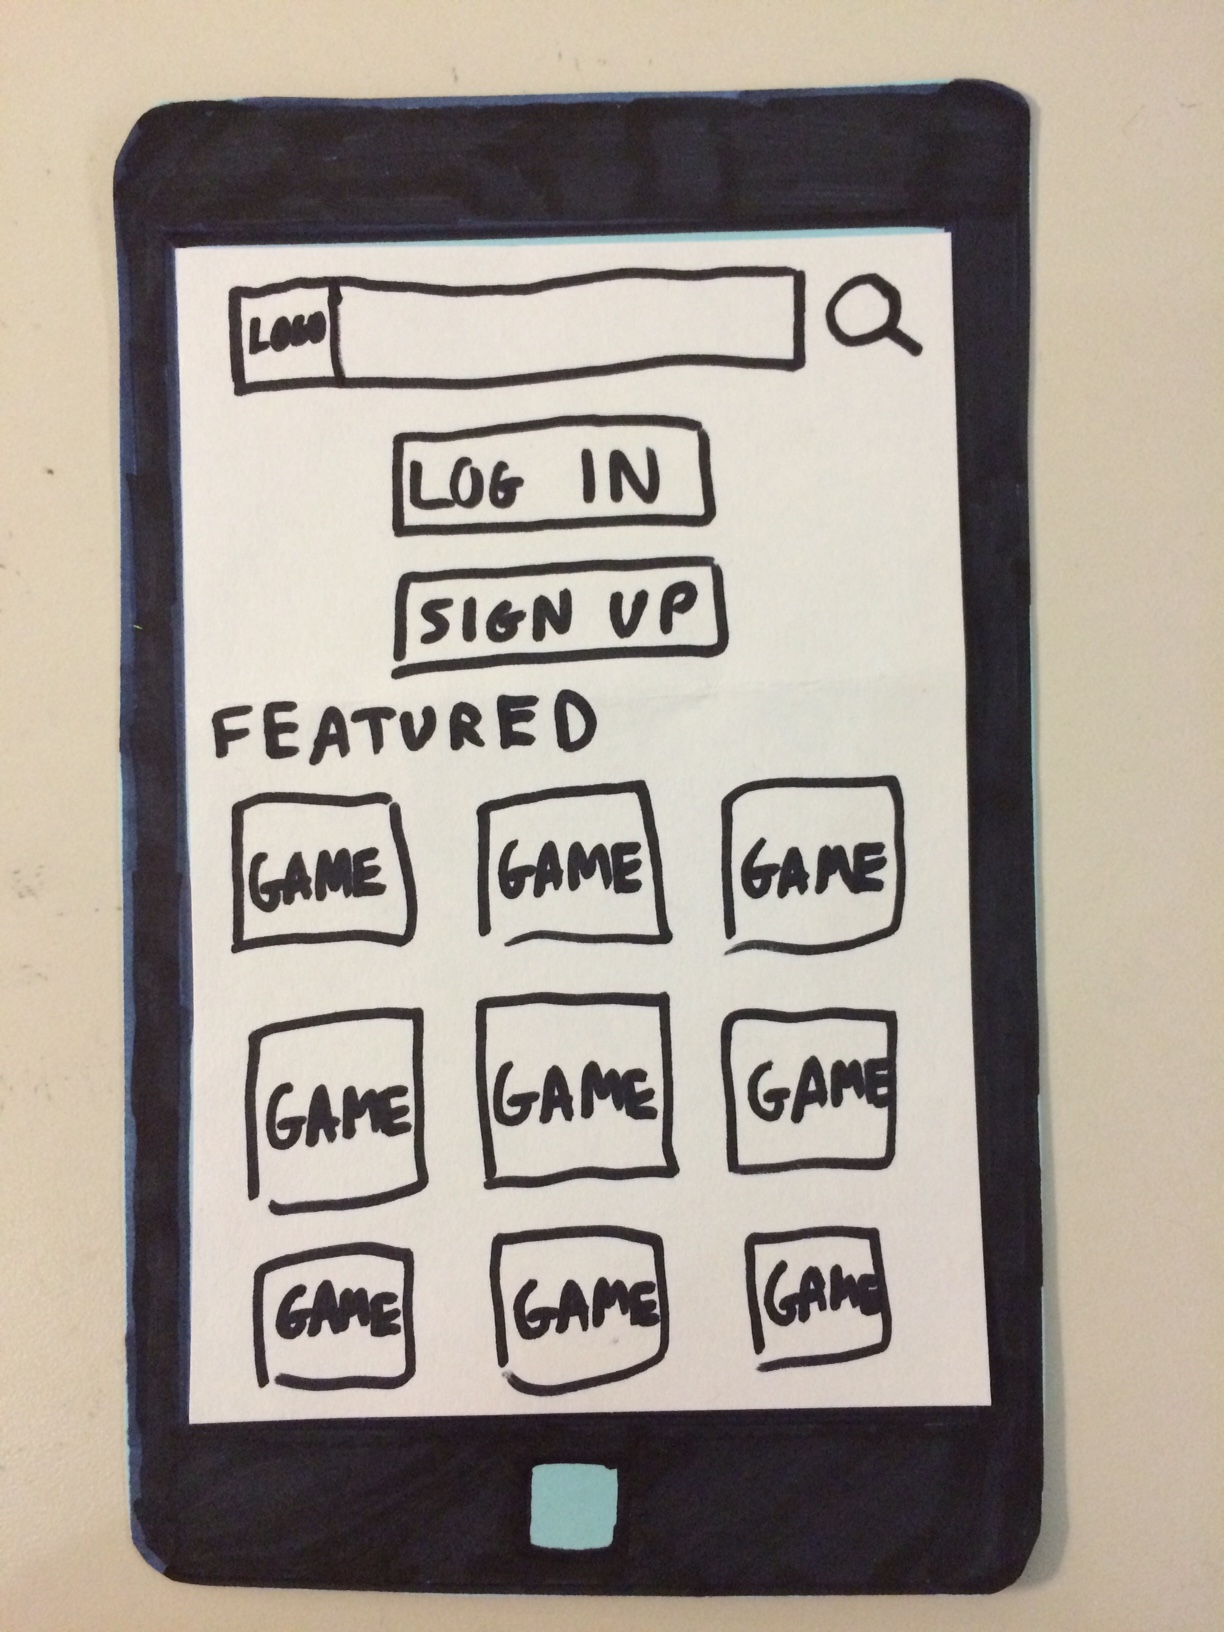 LOGO
LOG IN
SIGN UP
FEATURED
GAME GAME GAME
GAME GAME GAME
GAME GAME GAME